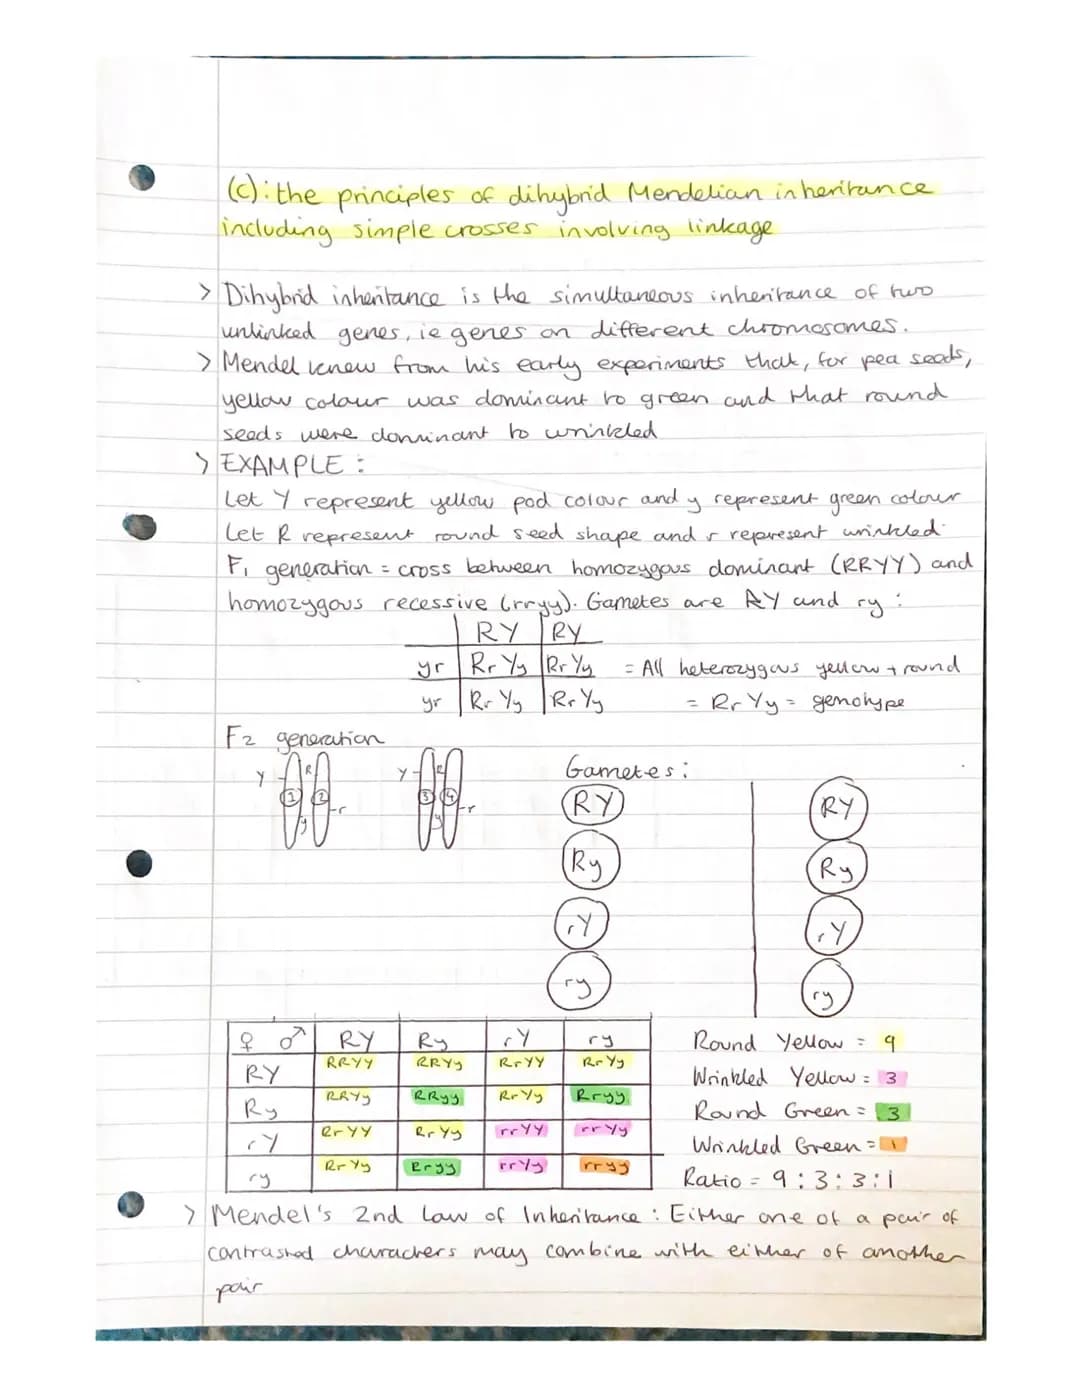 (c): the principles of dihybrid Mendelian inheritance
including simple crosses involving linkage
> Dihybrid inheritance is the simultaneous inheritance of two
unlinked genes, ie genes on different chromosomes.
> Mendel knew from his early experiments that, for pea seeds,
yellow colour was dominant to green and that round
seeds were dominant to wrinkled
> EXAMPLE :
Let Y represent yellow pod colour and y represent green colour
Let R represent round seed shape and r represent wrinkled.
F1 generation = cross between homozygous dominant (RRYY) and
homozygous recessive (rryy). Gametes are RY and ry :
RY RY
yr RrYy RrYy = All heterozygous yellow + round
yr RrYy RrYy = RrYy = genotype
F2 generation
Gametes :
Y R Y R
1 2 3 4
r r
y y
RY RY
Ry Ry
rY rY
ry ry
♀ ♂ RY Ry rY ry
RY RRYY RRYy RrYY RrYy
Ry RRYy RRyy RrYy Rryy
rY RrYY RrYy rrYY rrYy
ry RrYy Rryy rrYy rryy
Round Yellow = 9
Wrinkled Yellow = 3
Round Green = 3
Wrinkled Green = 1
Ratio = 9 : 3 : 3 : 1
> Mendel's 2nd Law of Inheritance : Either one of a pair of
contrasted characters may combine with either of another
pair